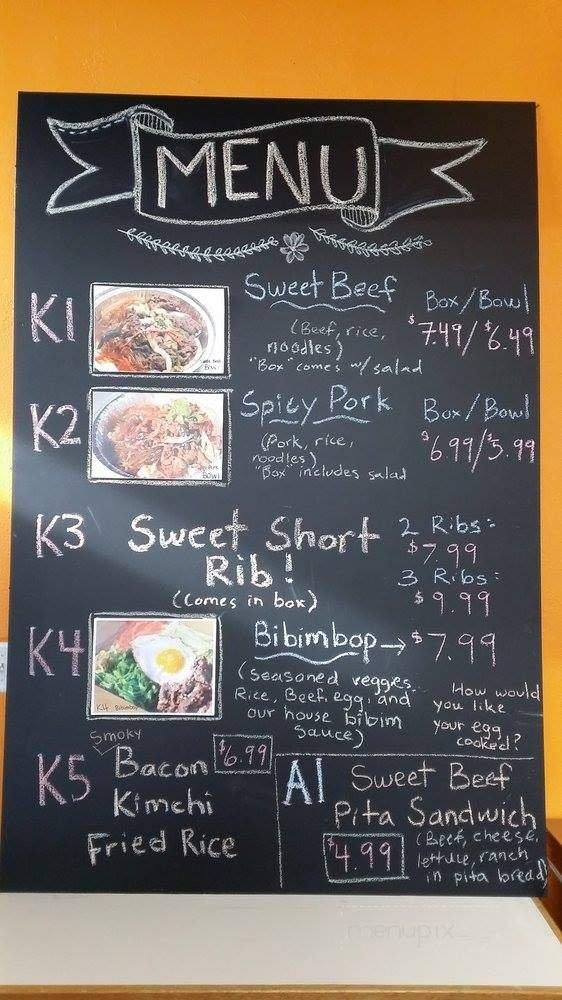 MENU
K1
Sweet Beef
Box/Bowl
(Beef, rice,
noodles)
"Box" comes w/ salad
$7.49/$6.49
BOWL
K2
Spicy Pork
Box/Bowl
(Pork, rice,
noodles)
"Box" includes salad
$6.99/$5.99
BOWL
K3
Sweet Short
Rib!
(Comes in box)
2 Ribs:
$7.99
3 Ribs:
$9.99
K4
Bibimbop → $7.99
(seasoned veggies
Rice, Beef, egg, and
our house bibim
sauce)
How would
you like
your egg
cooked?
K4 Bibimbop
K5
Smoky
Bacon
Kimchi
Fried Rice
$6.99
A1
Sweet Beef
Pita Sandwich
$4.99
(Beef, cheese,
lettuce, ranch
in pita bread)
menupix